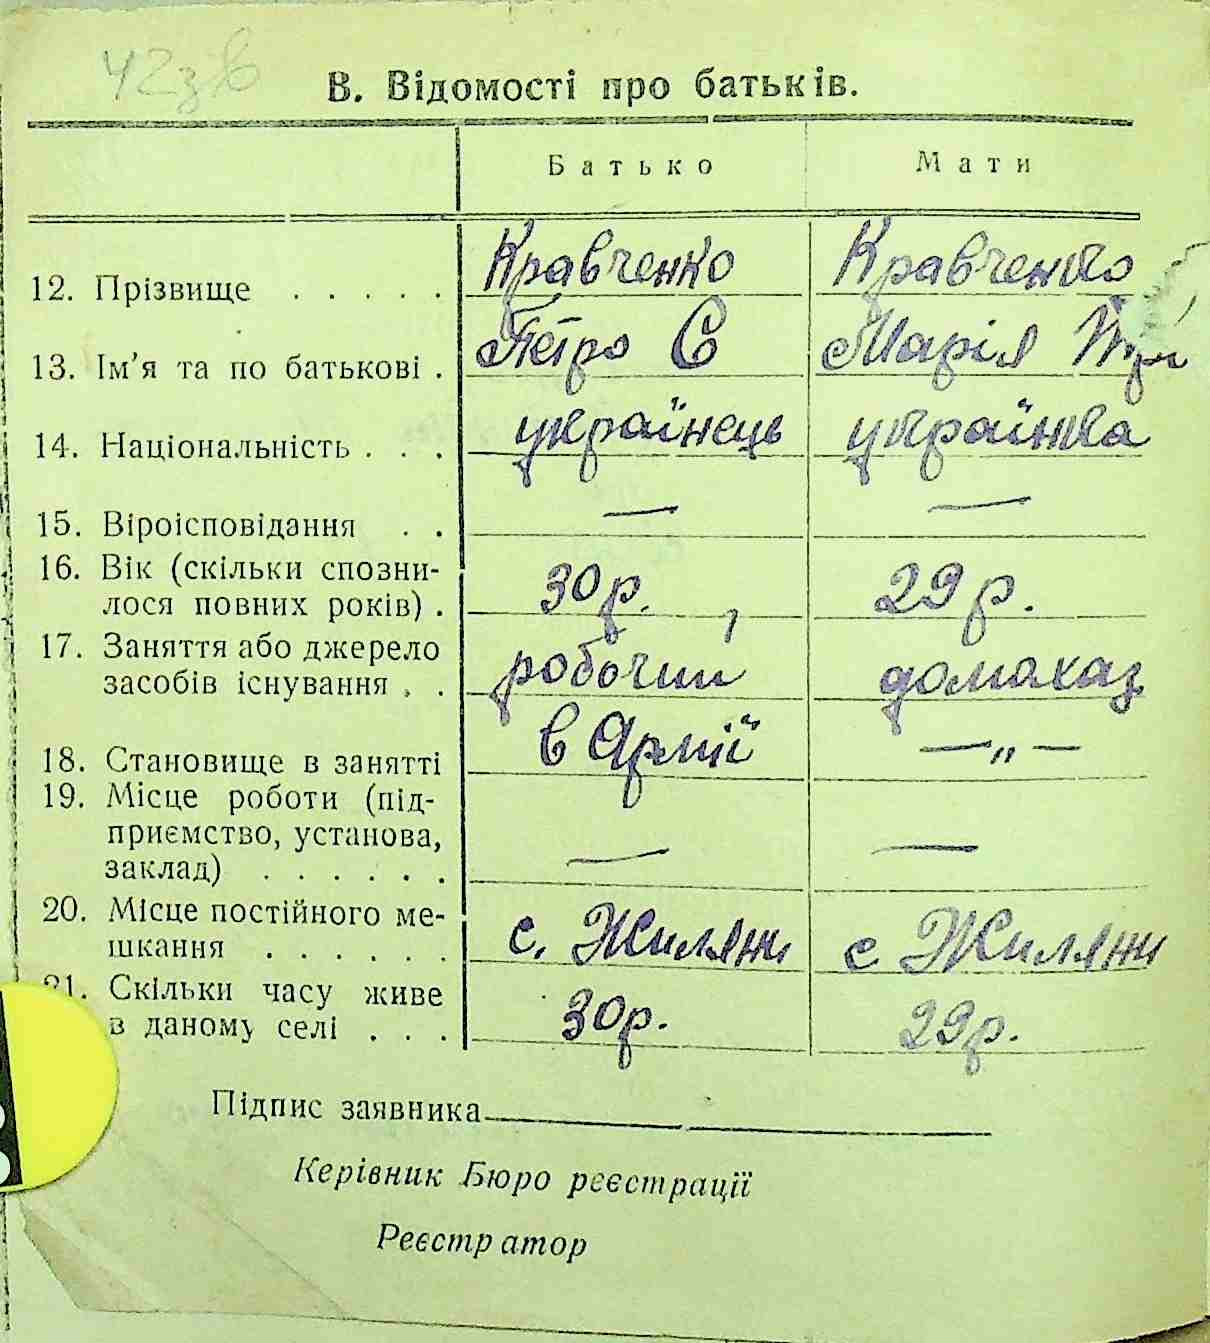 В. Відомості про батьків.
Батько Мати
12. Прізвище . . . . . Кравченко Кравченко
13. Ім'я та по батькові . Петро С Марія
14. Національність . . . українець українка
15. Віроісповідання . . — —
16. Вік (скільки спозни-
лося повних років) . 30 р. 29 р.
17. Заняття або джерело
засобів існування . . робочий домахаз
18. Становище в занятті в Армії — „ —
19. Місце роботи (під-
приємство, установа,
заклад) . . . . . . — —
20. Місце постійного ме-
шкання . . . . . . с. Жиляни с Жиляни
21. Скільки часу живе
в даному селі . . . 30р. 29р.
Підпис заявника
Керівник Бюро реєстрації
Реєстратор